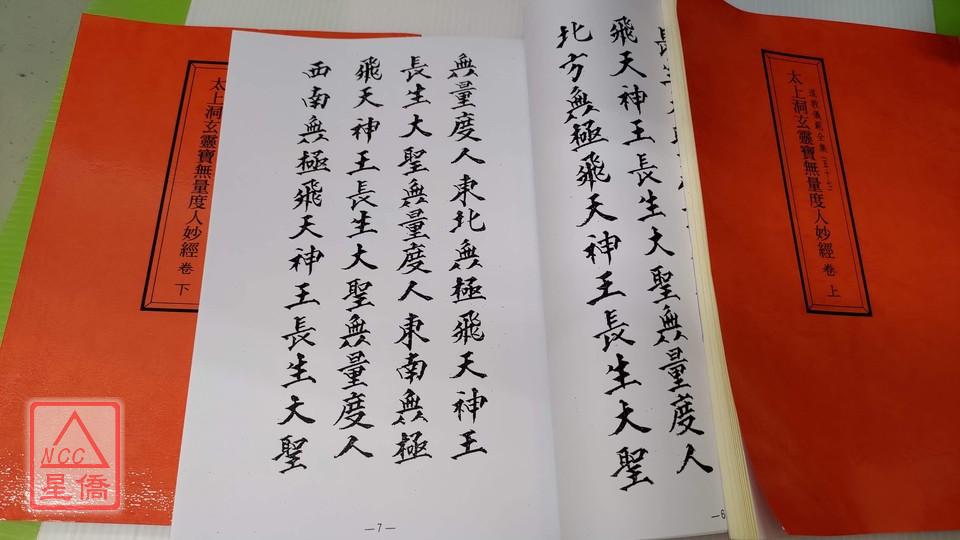 道教儀範全集
太上洞玄靈寶無量度人妙經 卷上
長生大聖無量度人
飛天神王長生大聖無量度人
北方無極飛天神王長生大聖
—6
無量度人東北無極飛天神王
長生大聖無量度人東南無極
飛天神王長生大聖無量度人
西南無極飛天神王長生大聖
—7—
太上洞玄靈寶無量度人妙經 卷下
NCC
星僑